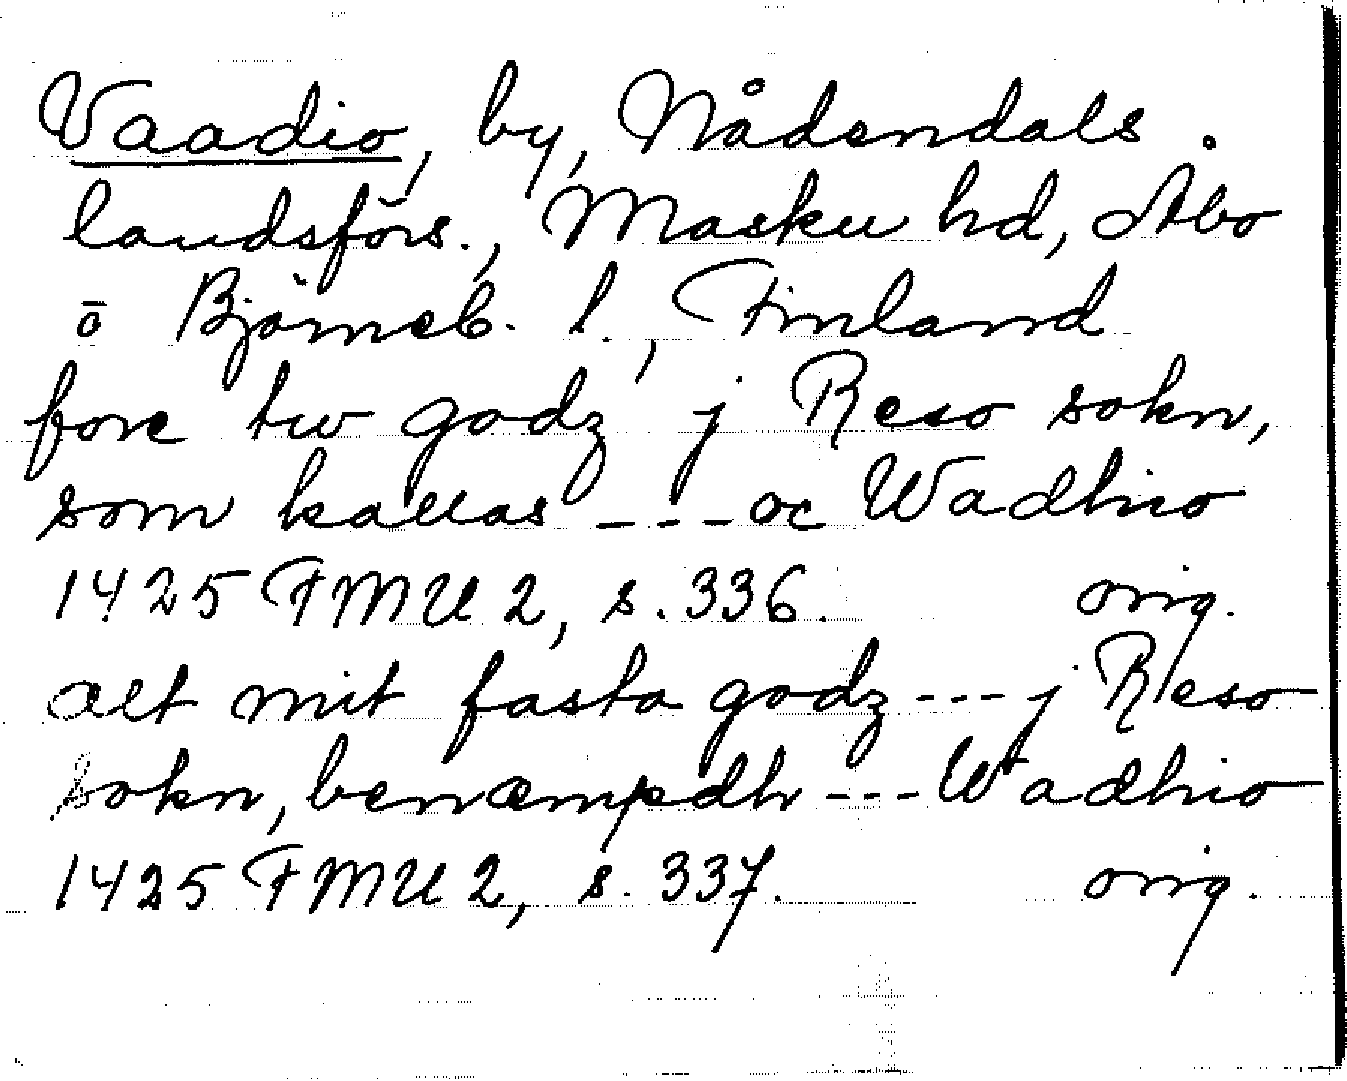 Vaadio, by, Nådendals.
landsförs., Masku hd, Åbo
o Björneb. l., Finland
fore tw godz j Reso sokn,
som kallas --- oc Wadhio
1425 FMU 2, s. 336. orig.
alt mit fasta godz --- j Reso
sokn, benæmpdh --- Wadhio
1425 FMU 2, s. 337. orig.